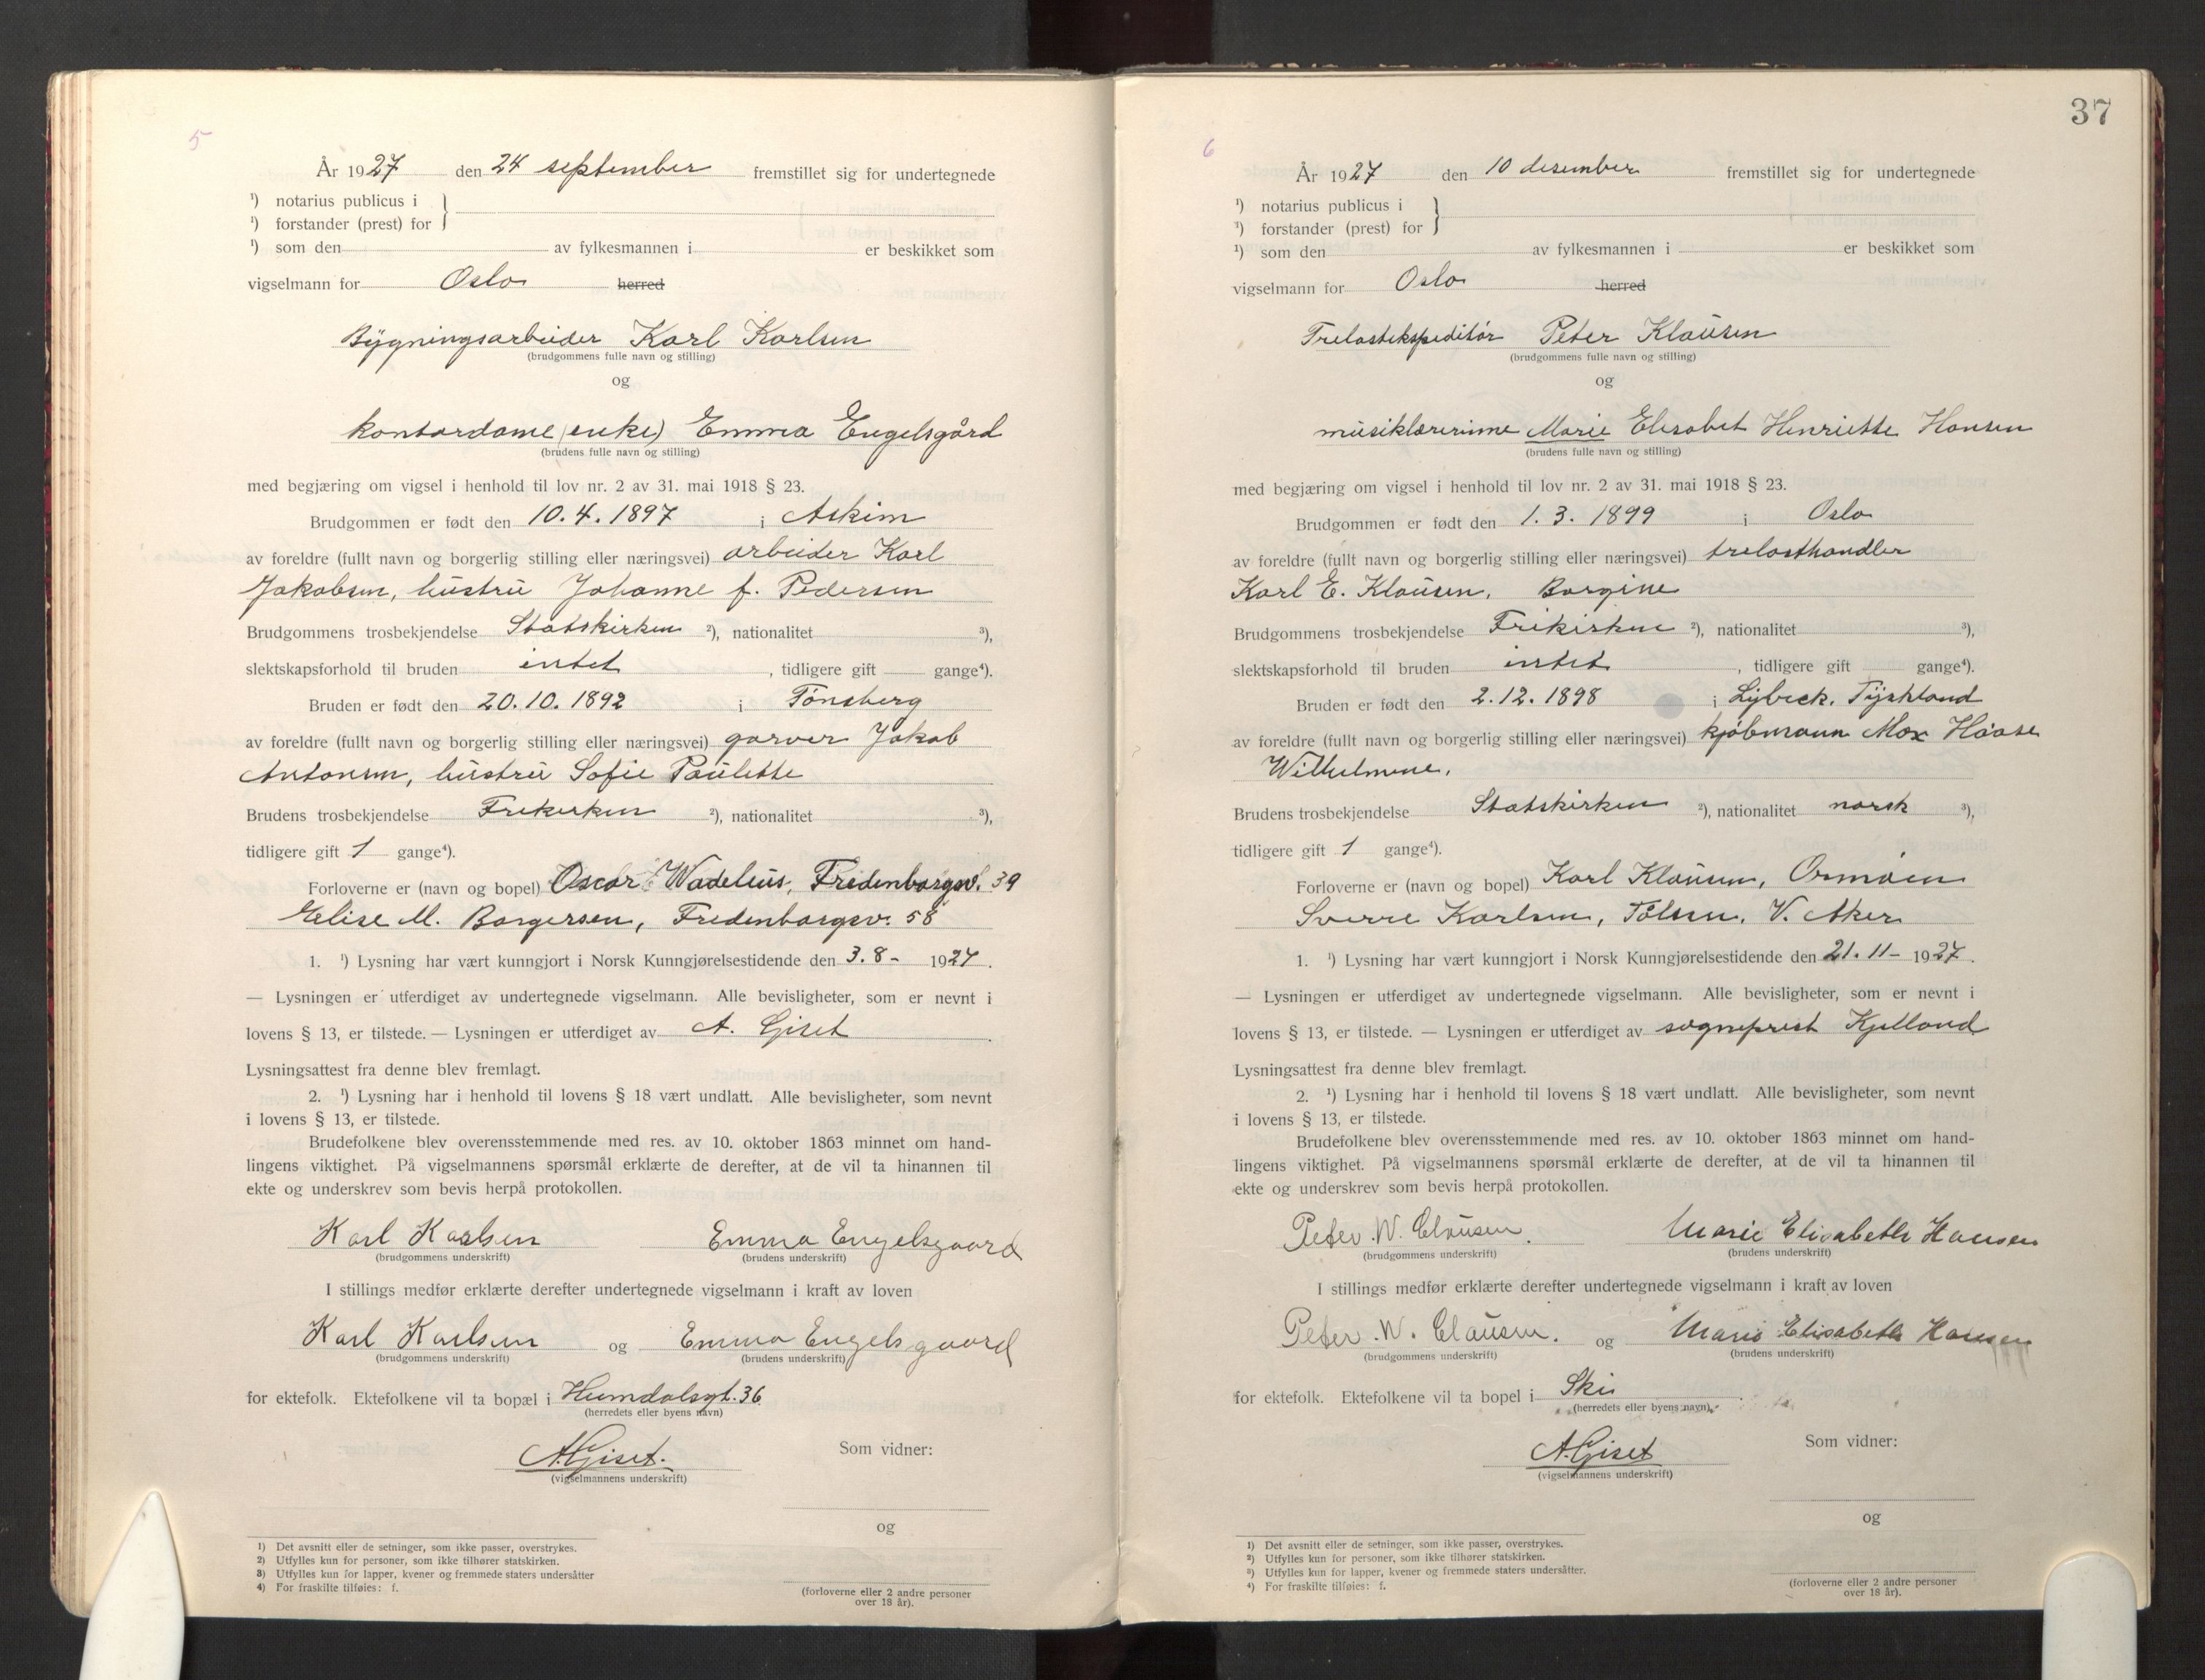 5
År 1927 den 24 september fremstillet sig for undertegnede
¹) notarius publicus i }
¹) forstander (prest) for
¹) som den av fylkesmannen i er beskikket som
vigselmann for Oslo herred
Bygningsarbeider Karl Karlsen
(brudgommens fulle navn og stilling)
og
kontordame (enke) Emma Engelsgård
(brudens fulle navn og stilling)
med begjæring om vigsel i henhold til lov nr. 2 av 31. mai 1918 § 23.
Brudgommen er født den 10.4.1897 i Askim
av foreldre (fullt navn og borgerlig stilling eller næringsvei) arbeider Karl
Jakobsen, hustru Johanne f. Pedersen
Brudgommens trosbekjendelse Statskirken ²), nationalitet ³),
slektskapsforhold til bruden intet, tidligere gift gange⁴).
Bruden er født den 20.10.1892 i Tønsberg
av foreldre (fullt navn og borgerlig stilling eller næringsvei) garver Jakob
Antonsen, hustru Sofie Paulette
Brudens trosbekjendelse Frikirken ²), nationalitet ³),
tidligere gift 1 gange⁴).
Forloverne er (navn og bopel) Oscar Wadelius, Fredenborgv. 39
Elise M. Borgersen, Fredenborgsv. 58
1. ¹) Lysning har vært kunngjort i Norsk Kunngjørelsestidende den 3.8- 1927.
— Lysningen er utferdiget av undertegnede vigselmann. Alle bevisligheter, som er nevnt i
lovens § 13, er tilstede. — Lysningen er utferdiget av A. Giset.
Lysningsattest fra denne blev fremlagt.
2. ¹) Lysning har i henhold til lovens § 18 vært undlatt. Alle bevisligheter, som nevnt
i lovens § 13, er tilstede.
Brudefolkene blev overensstemmende med res. av 10. oktober 1863 minnet om hand-
lingens viktighet. På vigselmannens spørsmål erklærte de derefter, at de vil ta hinannen til
ekte og underskrev som bevis herpå protokollen.
Karl Karlsen Emma Engelsgaard
(brudgommens underskrift) (brudens underskrift)
I stillings medfør erklærte derefter undertegnede vigselmann i kraft av loven
Karl Karlsen og Emma Engelsgaard
(brudgommens underskrift) (brudens underskrift)
for ektefolk. Ektefolkene vil ta bopæl i Humdalsgt. 36
(herredets eller byens navn)
A. Giset. Som vidner:
(vigselmannens underskrift)
og
1) Det avsnitt eller de setninger, som ikke passer, overstrykes.
2) Utfylles kun for personer, som ikke tilhører statskirken.
3) Utfylles kun for lapper, kvener og fremmede staters undersåtter
4) For fraskilte tilføies: f.
(forloverne eller 2 andre personer
over 18 år).
37
6
År 1927 den 10 desember fremstillet sig for undertegnede
¹) notarius publicus i }
¹) forstander (prest) for
¹) som den av fylkesmannen i er beskikket som
vigselmann for Oslo herred
Trelastekspeditør Peter Klausen
(brudgommens fulle navn og stilling)
og
musiklærerinne Marie Elisabet Henriette Hansen
(brudens fulle navn og stilling)
med begjæring om vigsel i henhold til lov nr. 2 av 31. mai 1918 § 23.
Brudgommen er født den 1.3.1899 i Oslo
av foreldre (fullt navn og borgerlig stilling eller næringsvei) trelasthandler
Karl E. Klausen, Borgine
Brudgommens trosbekjendelse Frikirken ²), nationalitet ³),
slektskapsforhold til bruden intet, tidligere gift gange⁴).
Bruden er født den 2.12.1898 i Lybeck, Tyskland
av foreldre (fullt navn og borgerlig stilling eller næringsvei) kjøbmann Max Haase
Wilhelmine.
Brudens trosbekjendelse Statskirken ²), nationalitet norsk ³),
tidligere gift 1 gange⁴).
Forloverne er (navn og bopel) Karl Klausen, Ormøen
Sverre Karlsen, V. Aker
1. ¹) Lysning har vært kunngjort i Norsk Kunngjørelsestidende den 21.11- 1927.
— Lysningen er utferdiget av undertegnede vigselmann. Alle bevisligheter, som er nevnt i
lovens § 13, er tilstede. — Lysningen er utferdiget av sogneprest Kjelland
Lysningsattest fra denne blev fremlagt.
2. ¹) Lysning har i henhold til lovens § 18 vært undlatt. Alle bevisligheter, som nevnt
i lovens § 13, er tilstede.
Brudefolkene blev overensstemmende med res. av 10. oktober 1863 minnet om hand-
lingens viktighet. På vigselmannens spørsmål erklærte de derefter, at de vil ta hinannen til
ekte og underskrev som bevis herpå protokollen.
Peter W. Clausen. Marie Elisabeth Hansen
(brudgommens underskrift) (brudens underskrift)
I stillings medfør erklærte derefter undertegnede vigselmann i kraft av loven
Peter W. Clausen. og Marie Elisabeth Hansen
(brudgommens underskrift) (brudens underskrift)
for ektefolk. Ektefolkene vil ta bopel i Ski.
(herredets eller byens navn)
A. Giset Som vidner:
(vigselmannens underskrift)
og
1) Det avsnitt eller de setninger, som ikke passer, overstrykes.
²) Utfylles kun for personer, som ikke tilhører statskirken.
³) Utfylles kun for lapper, kvener og fremmede staters undersåtter.
⁴) For fraskilte tilføies: f.
(forloverne eller 2 andre personer
over 18 år).